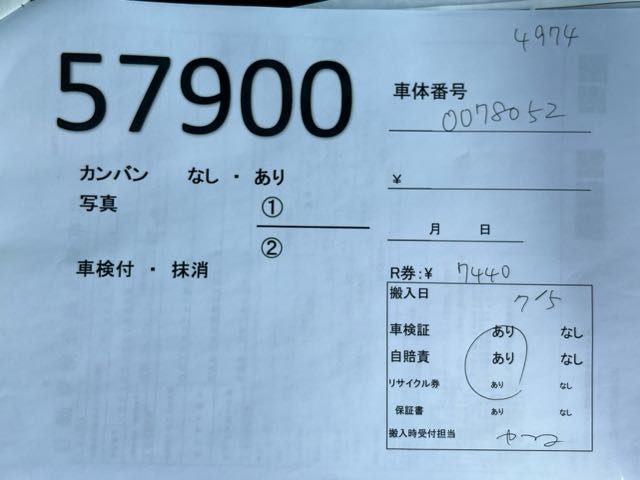 4974
57900
車体番号
0078052
カンバン なし ・ あり
¥
写真 ①
月 日
②
車検付 ・ 抹消
R券:¥ 7440
搬入日
7/5
車検証 あり なし
自賠責 あり なし
リサイクル券 あり なし
保証書 あり なし
搬入時受付担当